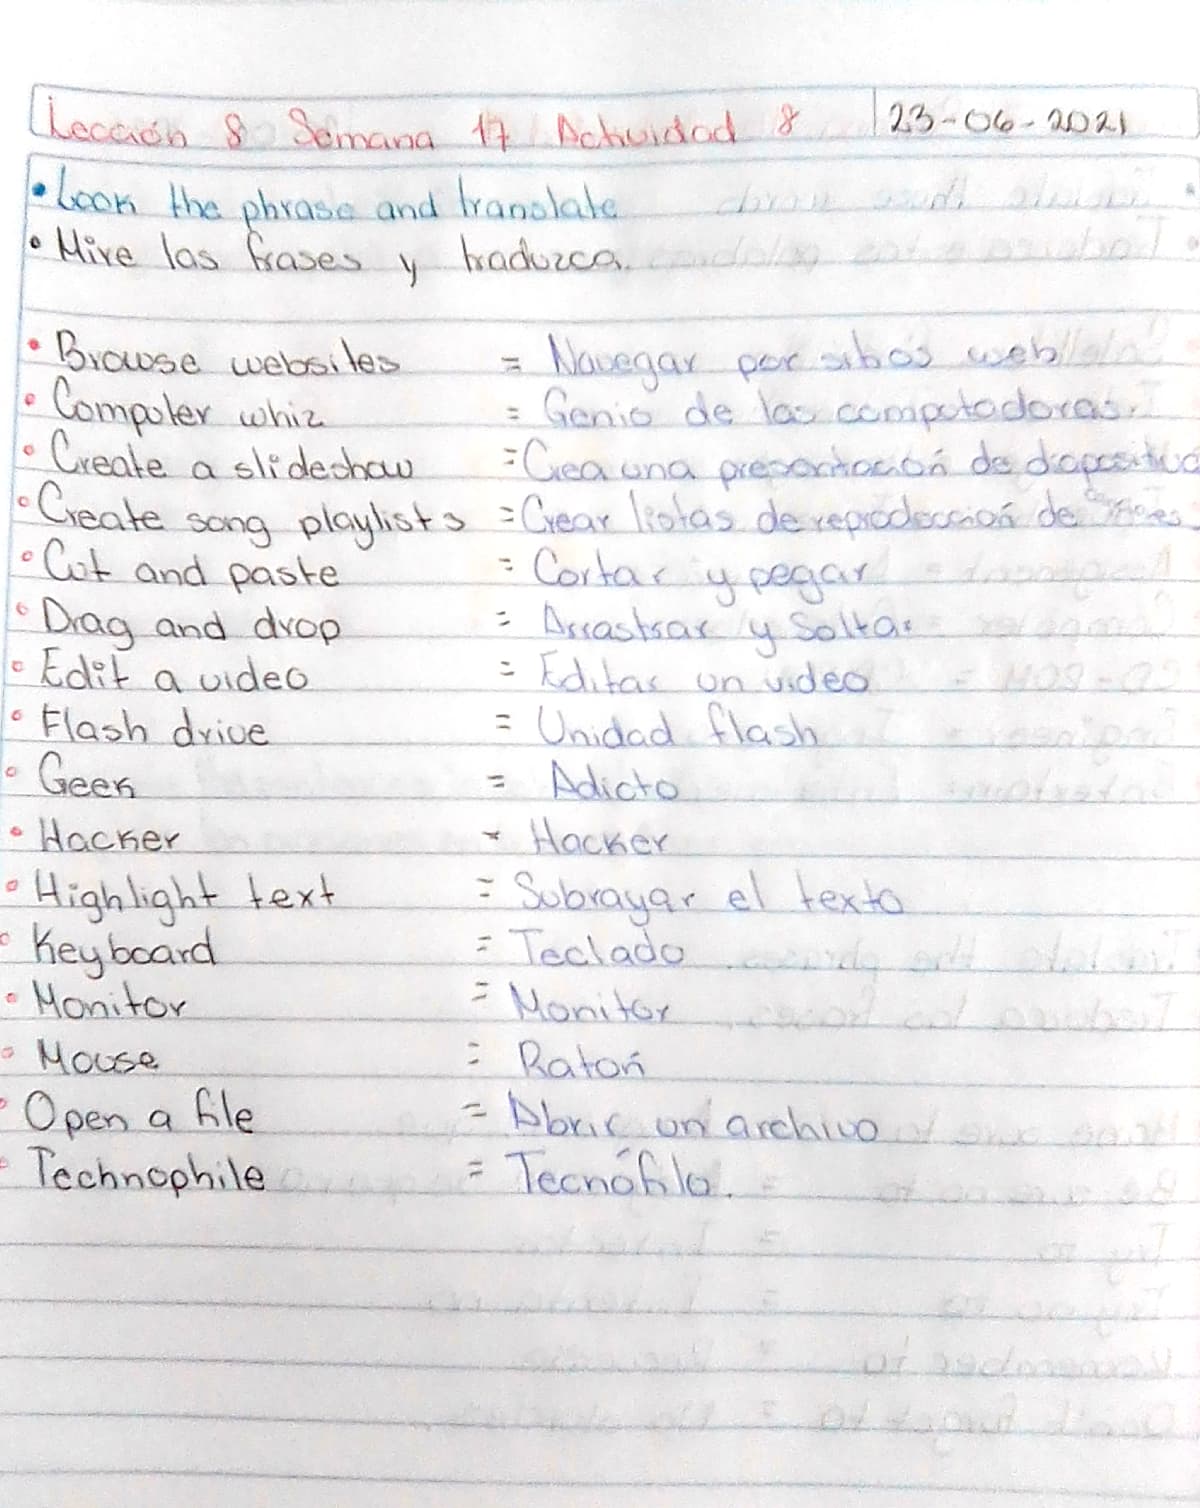 Lección 8 Semana 17 Actividad 8 23-06-2021
• Look the phrase and translate
• Mire las frases y traduzca.
• Browse websites = Navegar por sitios web
• Computer whiz = Genio de las computadoras.
• Create a slideshow = Crea una presentación de diapositiva
• Create song playlists = Crear listas de reproducción de
• Cut and paste = Cortar y pegar
• Drag and drop = Arrastrar y Soltar
• Edit a video = Editar un video
• Flash drive = Unidad flash
• Geek = Adicto
• Hacker = Hacker
• Highlight text = Subrayar el texto
• Keyboard = Teclado
• Monitor = Monitor
• Mouse = Ratón
• Open a file = Abrir un archivo
• Technophile = Tecnófilo.